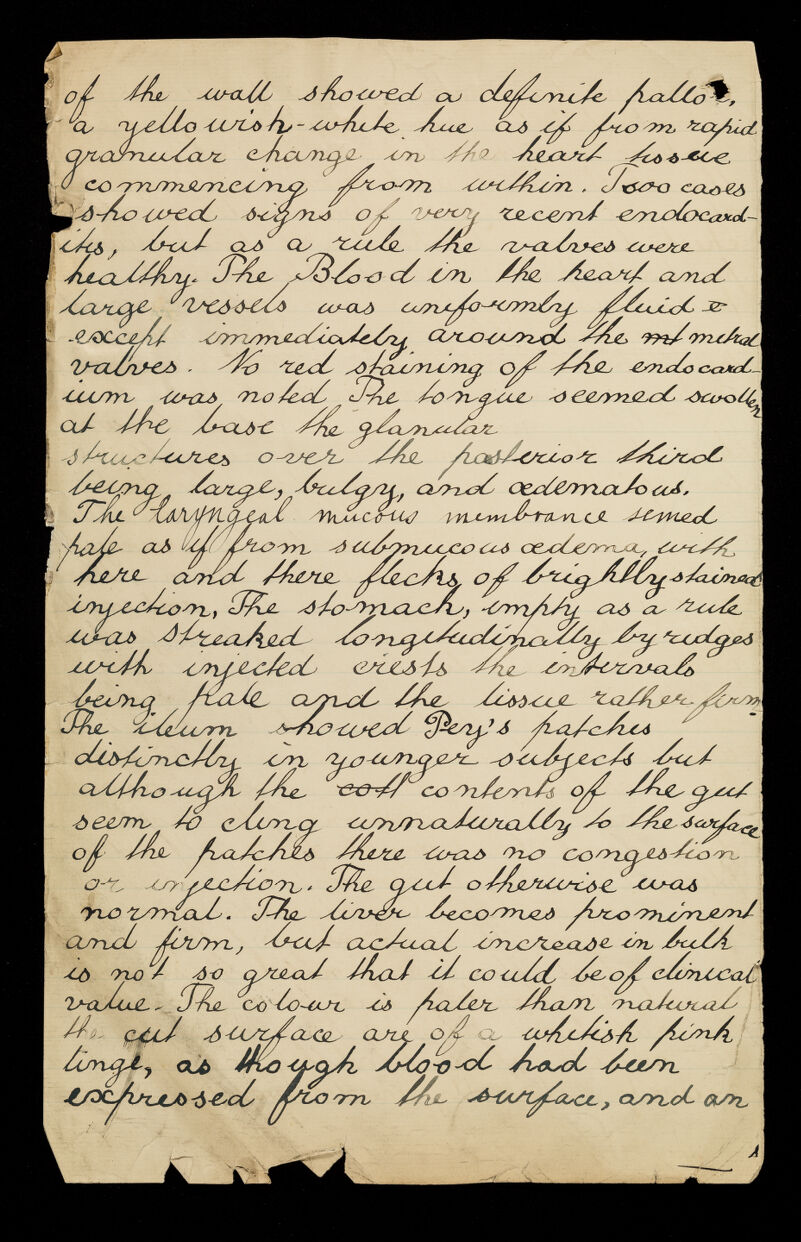 of the wall showed a definite pallor,
a yellowish-white hue as if from rapid
granular change in the heart tissue
commencing from within. Two cases
showed signs of very recent endocard-
itis, but as a rule the valves were
healthy. The Blood in the heart and
large vessels was uniformly fluid e
except immediately around the mt mitral
valves. No red staining of the endocard-
ium was noted The tongue seemed swollen
at the base the glanular
structures over the posterior third
being large, bulgy, and œdematous.
The laryngeal mucous membrance semed
pale as if from submucous œdema, with
here and there flecks of brightly stained
injection, The stomach, empty as a rule
was streaked longitudinally by ridges
with injected crests the intervals
being pale and the tissue rather firm
The ileum showed Pery's patches
distinctly in younger subjects but
although the cott contents of the gut
seem to cling unnaturally to the surface
of the patches there was no congestion
or injection. The gut otherwise was
normal. The liver becomes prominent
and firm, but actual increase in bulk
is not so great that it could be of clinical
value. The colour is paler than natural
the cut surface are of a whitish pink
tinge, as though blood had been
expressed from the surface, and an